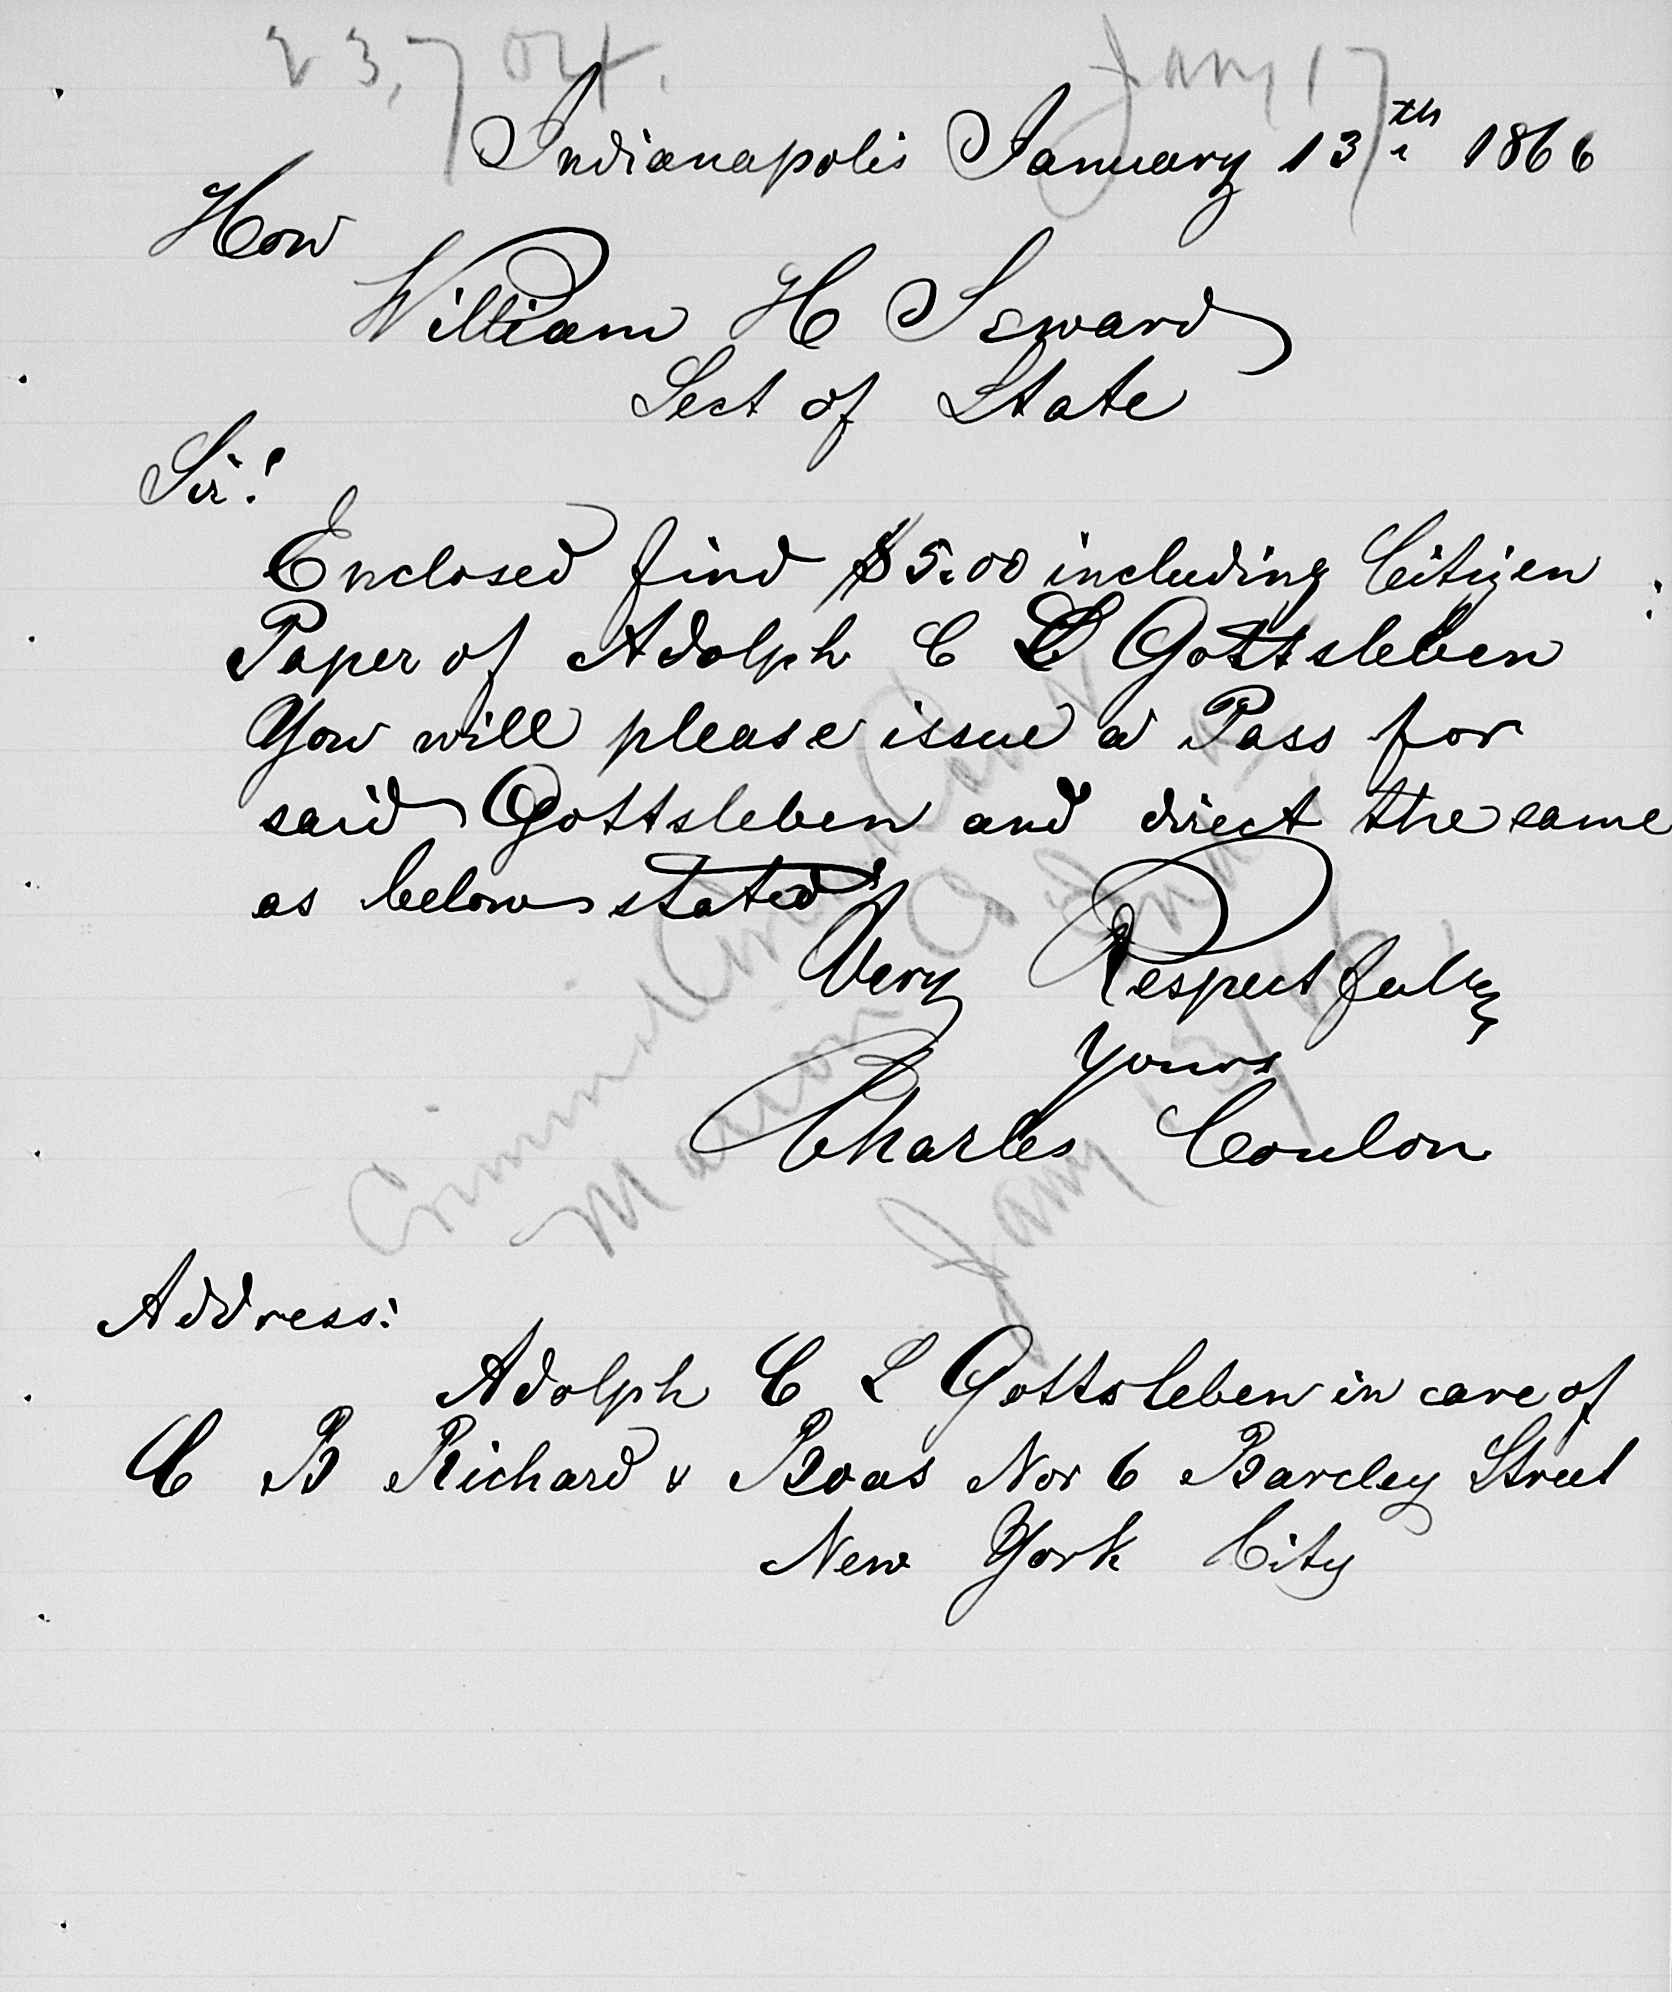 23,704. Jany 17
Indianapolis January 13th 1866
Hon
William H Seward
Sect of State
Sir!
Enclosed find $5.00 including Citizen
Paper of Adolph C L Gottsleben
You will please issue a Pass for
said Gottsleben and direct the same
as below stated
Very Respectfully
Yours
Charles Coulon
Criminal Circuit Court
Marion Co Ind
Jany 13/66
Address:
Adolph C L Gottsleben in care of
C B Richard & Boas Nor 6 Barcley Street
New York City